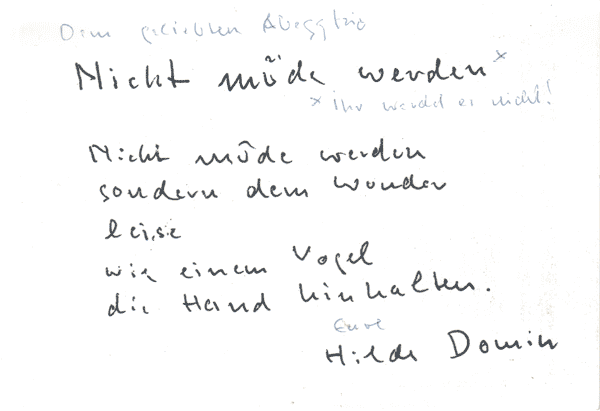 Dem geliebten Abeggtrio
Nicht müde werden*
* Ihr werdet es nicht!
Nicht müde werden
sondern dem Wunder
leise
wie einem Vogel
die Hand hinhalten.
Eure
Hilde Domin